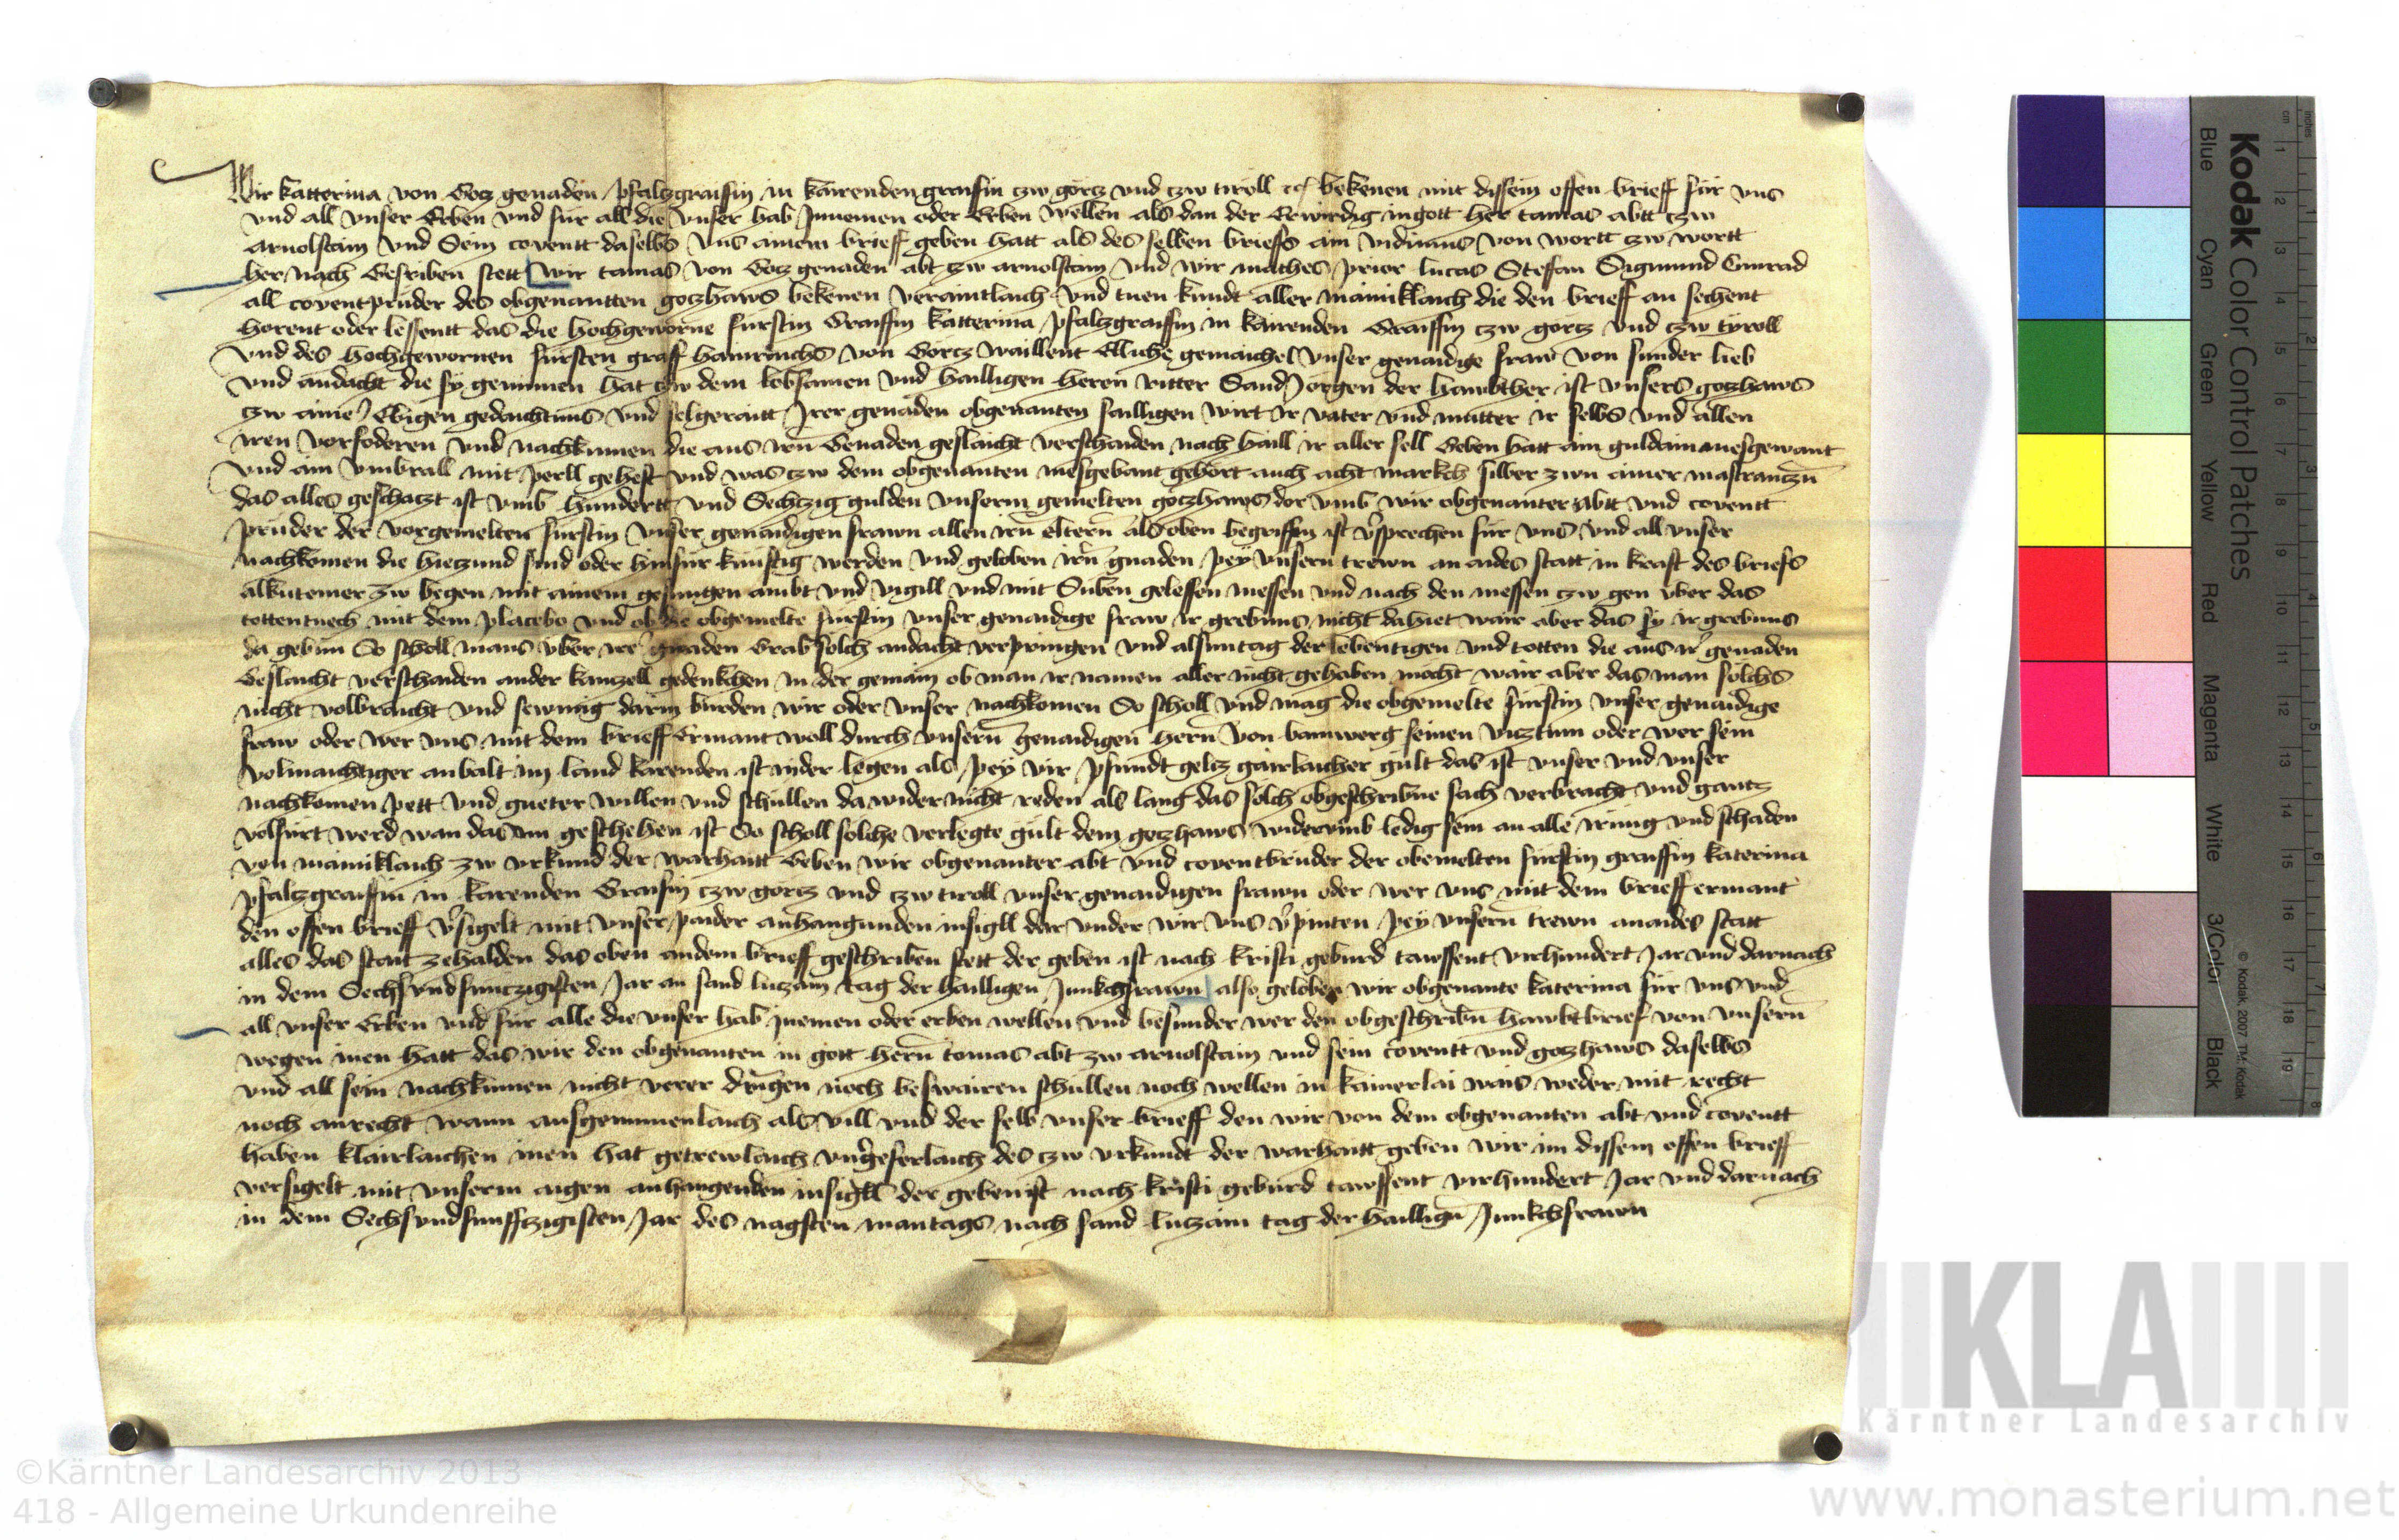 Wir katterina von Gotz genaden pfaltzgraiffin in kärenden graifin czw görtz vnd czw tiroll etc bekenen mit dissem offen brieff für vns
vnd all vnser Erben vnd für all die vnser hab Innemen oder Erben wellen als dan der Erwirdig in gott her tamas abtt czw
arnolstain vnd Sein coventt daselbs vns ainem brieff geben hatt als des selben brieffs ain vidimus von wortt zw wortt
her nach Gesriben stett Wir tamas von Gotz genaden abt zw arnolstain vnd wir mathes prior lucas Steffan Sigmund Cunrad
all coventprüder des obgenantten gotzhaws bekenen veraintlaich vnd tuen kundt aller mainiklaich die den brieff an sechent
horent oder lessentt das die hochgeworne fürstin Graiffin katterina pfaltzgraiffin in kärenden Graiffin czw görtz vnd czw tyroll
vnd des hochgewornen fürsten graff hainrichs von Görtz waillent Elliche gemaichel vnser genaidige fraw von sunder lieb
vnd andacht die sy genumen hat czw dem lobsamen vnd hailligen heren ritter Sand Jorgen der hawbther ist vnsers gotzhaws
czw aine Ebigen gedachtnus vnd selgeraitt Irer genaden obgenanten sailligen wirt ir vater vnd mutter ir selbs vnd allen
iren vorfoderen vnd nachkumen die aus irn Genaden geslaicht verschaiden nach haill ir aller sell Geben hatt ain guldain mesgewant
vnd ain vmbrall mit perll gehefft vnd was czw dem obgenanten mesgebant gehort auch acht markch silber zwn ainer mastranczn
das alles geschatzt ist vmb hundertt vnd Sechtzig gulden vnserm gemelten gotzhaws dor vmb wir obgenanter Abtt vnd coventt
prüder der vorgemelten fürstin vnser genaidigen frawn allen irn eltern als oben begriffen ist vsprechen für vns vnd all vnser
nachkomen die hietzund sind oder hinfür künftig werden vnd geloben irn gnaden pey vnsern trewn an aides statt in kraft des briefs
alkutemer zw begen mit ainem gesungen ambt vnd vigill vnd mit Siben gelessen messen vnd nach den messen czw gen vber das
tottentuech mit dem placebo vnd ob die obgemelte fürstin vnser genaidige fraw ir grebnus nicht dahiet wair aber das sy ir grebnus
da gebun So scholl mans vber irer gnaden Grab solch andacht verpringen vnd alsuntag der lebentigen vnd totten die aus ir genaden
Geslaicht verschaiden ander kantzell gedenkchen in der gemain ob man ir namen aller nicht gehaben mocht wair aber das man solchs
nicht volbraicht vnd sewmig darin burden wir oder vnser nachkomen So scholl vnd mag die obgemelte fürstin vnser genaidige
fraw oder wer vns mit dem brieff Ermant woll durch vnsern genaidigen hern von bamwerg seinen vitztum oder wer sein
volmaichtiger anbalt im land kärenden ist nider legen als pey vir pfundt geltz gairlaicher gült das ist vnser vnd vnser
nachkomen pett vnd gueter willen vnd schullen da wider nicht reden als lang das solch obgeschribne sach verbracht vnd gantz
volfürt werd wan das nun geschehen ist So scholl solche verlegte gült dem gotzhaws widervmb ledig sein an alle irrung vnd schaden
von mainiklaich zw vrkund der warhaitt Geben wir obgenanter abt vnd coventbruder der obemelten fürstin graiffin katerina
pfaltzgraiffin in kärenden Graifin czw görtz vnd czw tiroll vnser genaidigen frawn oder wer vns mit dem brieff ermant
den offen brieff vsigelt mit vnser paider anhangunden insigll dar vnder wir vns vpinten pey vnsern trewn an aides statt
alles das staitt zehalden das oben an dem brieff geschriben stett der geben ist nach kristi geburd tawssent virhundert Jar vnd darnach
in dem Sechs vnd funczigisten Jar an sand lutzain tag der hailligen Junkchfrawn also geloben wir obgenante katerina für vns vnd
all vnser Erben vnd für alle die vnser hab Inemen oder erben wellen vnd besunder wer den obgeschribn hawbtbrief von vnsern
wegen inen hatt das wir den obgenanten in gott hern tomas abt zw arnolstain vnd sein coventt vnd gotzhaws daselbs
vnd all sein nachkumen nicht verer dringen noch beswairen schullen noch wellen in kainerlai wais weder mit recht
noch anrecht wann ausgenumenlaich als vill vnd der selb vnser brieff den wir von dem obgenanten abt vnd coventt
haben klairlaichen inen hat getrewlaich vngeferlaich des czw vrkundt der warhaitt geben wir im dissem offen brieff
versigelt mit vnserm aigen anhangenden insigll der geben ist nach kristi geburd tawssent virhundert Jar vnd darnach
in dem Sechs vnd funffczigisten Jar des nagsten mantags nach sand lutzain tag der hailligen Junkchfrawn
Kodak Color Control Patches
Blue Cyan Green Yellow Red Magenta White 3/Color Black
© Kodak, 2007 TM: Kodak
KLA
Kärntner Landesarchiv
©Kärntner Landesarchiv 2013
418 - Allgemeine Urkundenreihe
www.monasterium.net